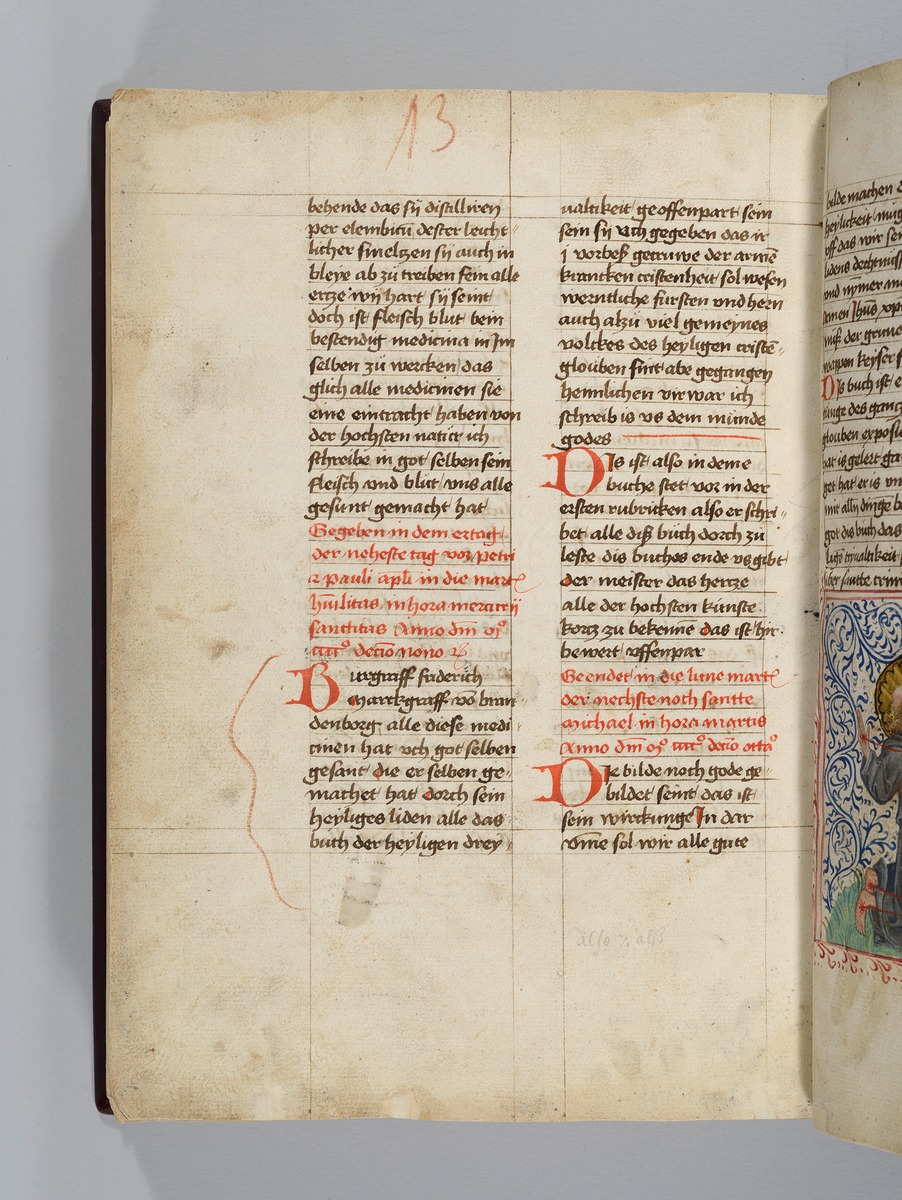 13
behende das sÿ distilliren
per elembicū dester leicht
licher smeltzen sÿ auch in
bleÿe ab zu treiben sein alle
ertze wÿ hart sÿ seint
doch ist fleisch blut bein
bestendig medicina in Im
selben zu wercken das
glich alle medicinen sie
eine eintracht haben von
der hochsten natur ich
schreibe in got selben sein
fleisch vnd blut vns alle
gesunt gemacht hat
Gegeben in dem ertag
der neheste tag vor petri
⁊ pauli apli in die mart
hūilitas in hora mercurij
sanctitas Anno dm̄
decīo nono
Burgraff friderich
Marckgraff vō bran
denborg alle diese medi
cinen hat vch got selben
gesant die er selben ge-
machet hat dorch sein
heÿliges liden alle das
buch der heÿligen dreÿ-
ualtikeit geoffenpart sein
sein sÿ vch gegeben das ir
j vorbeß getruwe der armē
krancken cristenheit sol wesen
werntliche fursten vnd hern
auch alzu viel gemeÿnes
volckes des heÿligen cristē-
glouben sint abe gegangen
heimlichen vir war ich
schreib is vs dem munde
godes
Dis ist also in deme
buche stet vor in der
ersten rubricken also er schri-
bet alle diß buch dorch zu
leste dis buches ende vs gibt
der meister das hertze
alle der hochsten kunste
kortz zu bekennē das ist hir
bewert vffenpar
Geendet in die lune mart
der nechste noch santte
Michael in hora martis
Anno dm̄ decīo
Die bilde noch gode ge-
bildet seint das ist
sein wirckunge In dar
vm̄e sol wir alle gute
also ⁊ alß